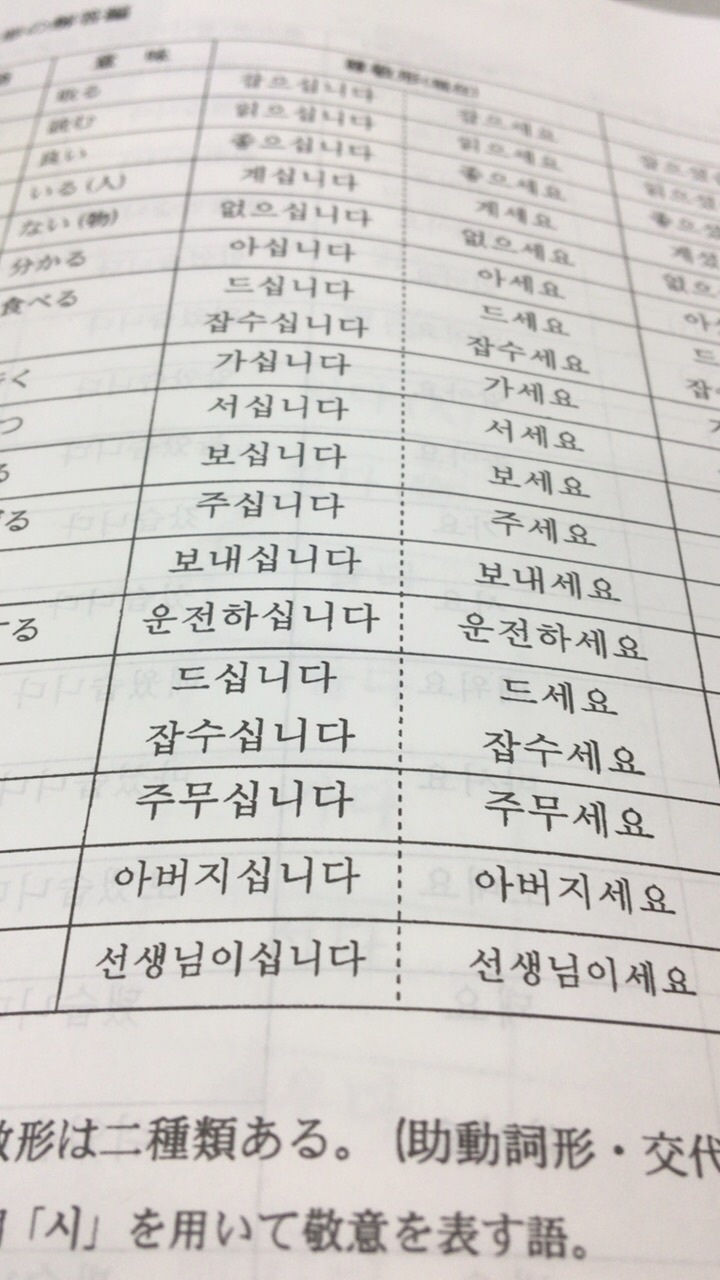 意 味 尊敬形(現在)
取る 잡으십니다 잡으세요
読む 읽으십니다 읽으세요
良い 좋으십니다 좋으세요
いる(人) 계십니다 계세요
ない(物) 없으십니다 없으세요
分かる 아십니다 아세요
食べる 드십니다 드세요
잡수십니다 잡수세요
가십니다 가세요
서십니다 서세요
보십니다 보세요
주십니다 주세요
보내십니다 보내세요
운전하십니다 운전하세요
드십니다 드세요
잡수십니다 잡수세요
주무십니다 주무세요
아버지십니다 아버지세요
선생님이십니다 선생님이세요
敬形は二種類ある。(助動詞形・交代
「시」を用いて敬意を表す語。